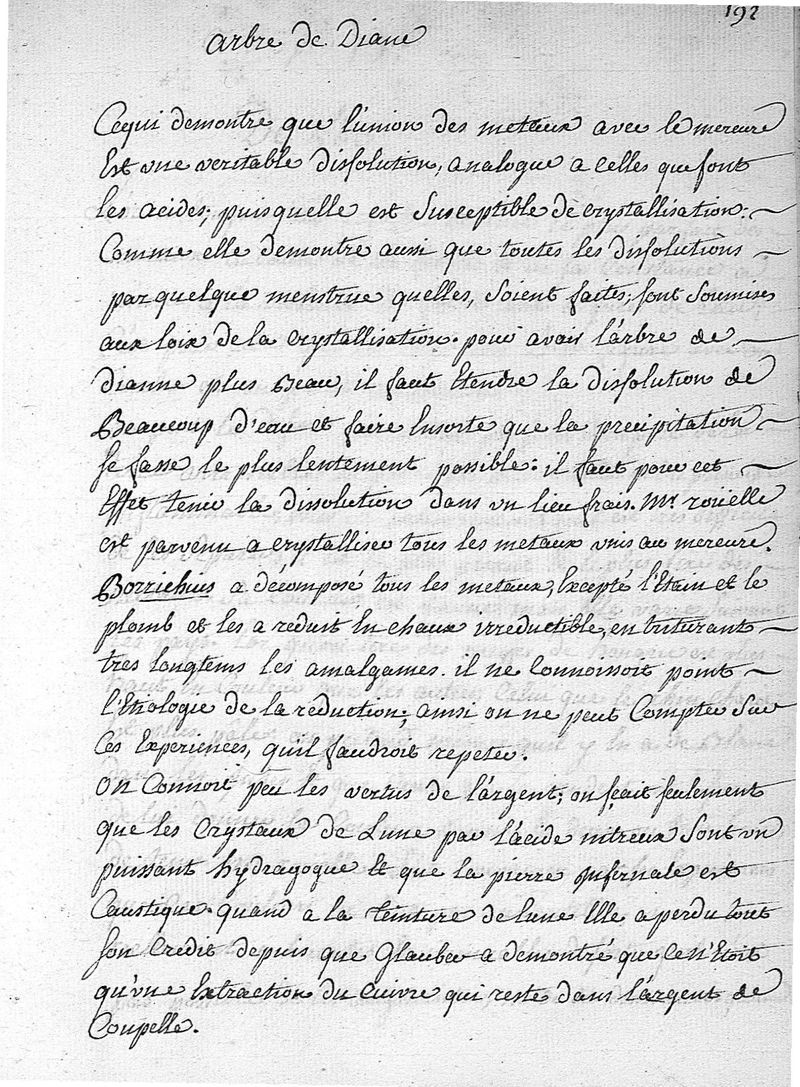 192
arbre de Diane
Cequi demontre que l'union des metaux avec le mercure
Est une veritable dissolution, analogue a celles que font
les acides; puisquelle est Susceptible de crystallisation.
Comme elle demontre aussi que toutes les dissolutions
par quelque menstrue quelles, Soient faites; sont Soumises
aux loix de la crystallisation. pour avoir l'arbre de
dianne plus Beau, il faut Etendre la dissolution de
Beaucoup d'eau et faire Ensorte que la precipitation
se fasse le plus lentement possible: il faut pour cet
Effet tenir la dissolution dans un lieu frais. Mr. roüelle
est parvenu a crystalliser tous les metaux unis au mercure.
Borrichius a decomposé tous les metaux, Excepté l'Etain et le
plomb et les a reduit En chaux irreductible, en triturant
tres longtems les amalgames. il ne Connoissoit point
l'Etiologie de la réduction; ainsi on ne peut Compter Sur
Ces Experiences, qu'il faudroit repeter.
On Connoit peu les vertus de l'argent; on sçait seulement
que les Crystaux de Lune par l'acide nitreux Sont un
puissant hydragogue Et que la pierre infernale est
Caustique. quand a la teinture de lune Elle a perdu tout
son Credit depuis que Glauber a demontré que Ce n'Etoit
qu'une Extraction du Cuivre qui reste dans l'argent de
Coupelle.